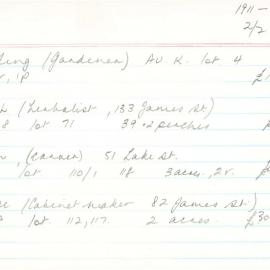 1911 –
2/2
(Gardener) Av. K. lot 4
1P
(Herbalist, 133 James St.)
8 lot 71 39.2 perches
51 Lake St.
lot 110/1 118 3 acres, 2r.
(Cabinet maker 82 James St.)
lot 112, 117. 2 acres. £30